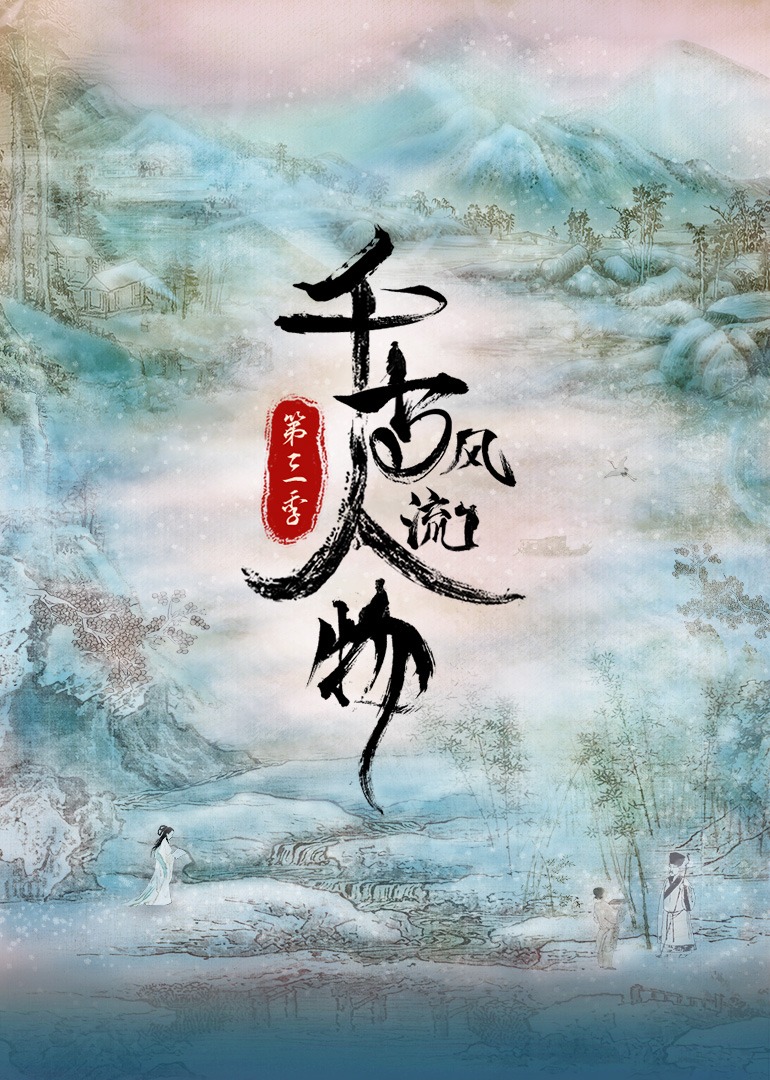 千古风流人物
第三季